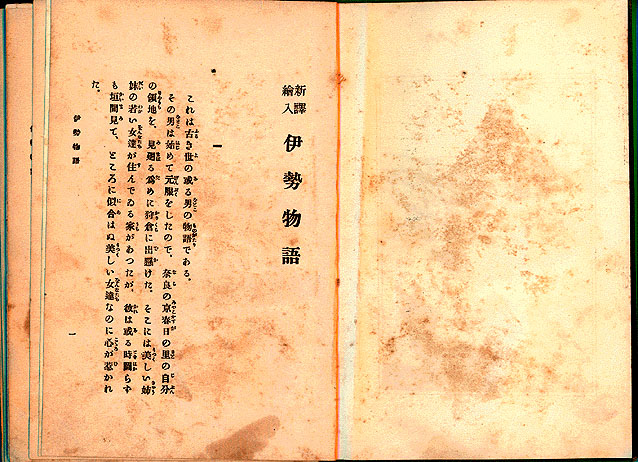 新譯
繪入
伊勢物語
一
これは古き世の或る男の物語である。
その男は始めて元服をしたので、奈良の京春日の里の自分
の領地を、見廻る爲めに狩倉に出懸けた。そこには美しい姉
妹の若い女達が住んでゐる家があつたが、彼は或る時圖らず
も垣間見て、ところに似合はぬ美しい女達なのに心が惹かれ
た。
伊勢物語
一